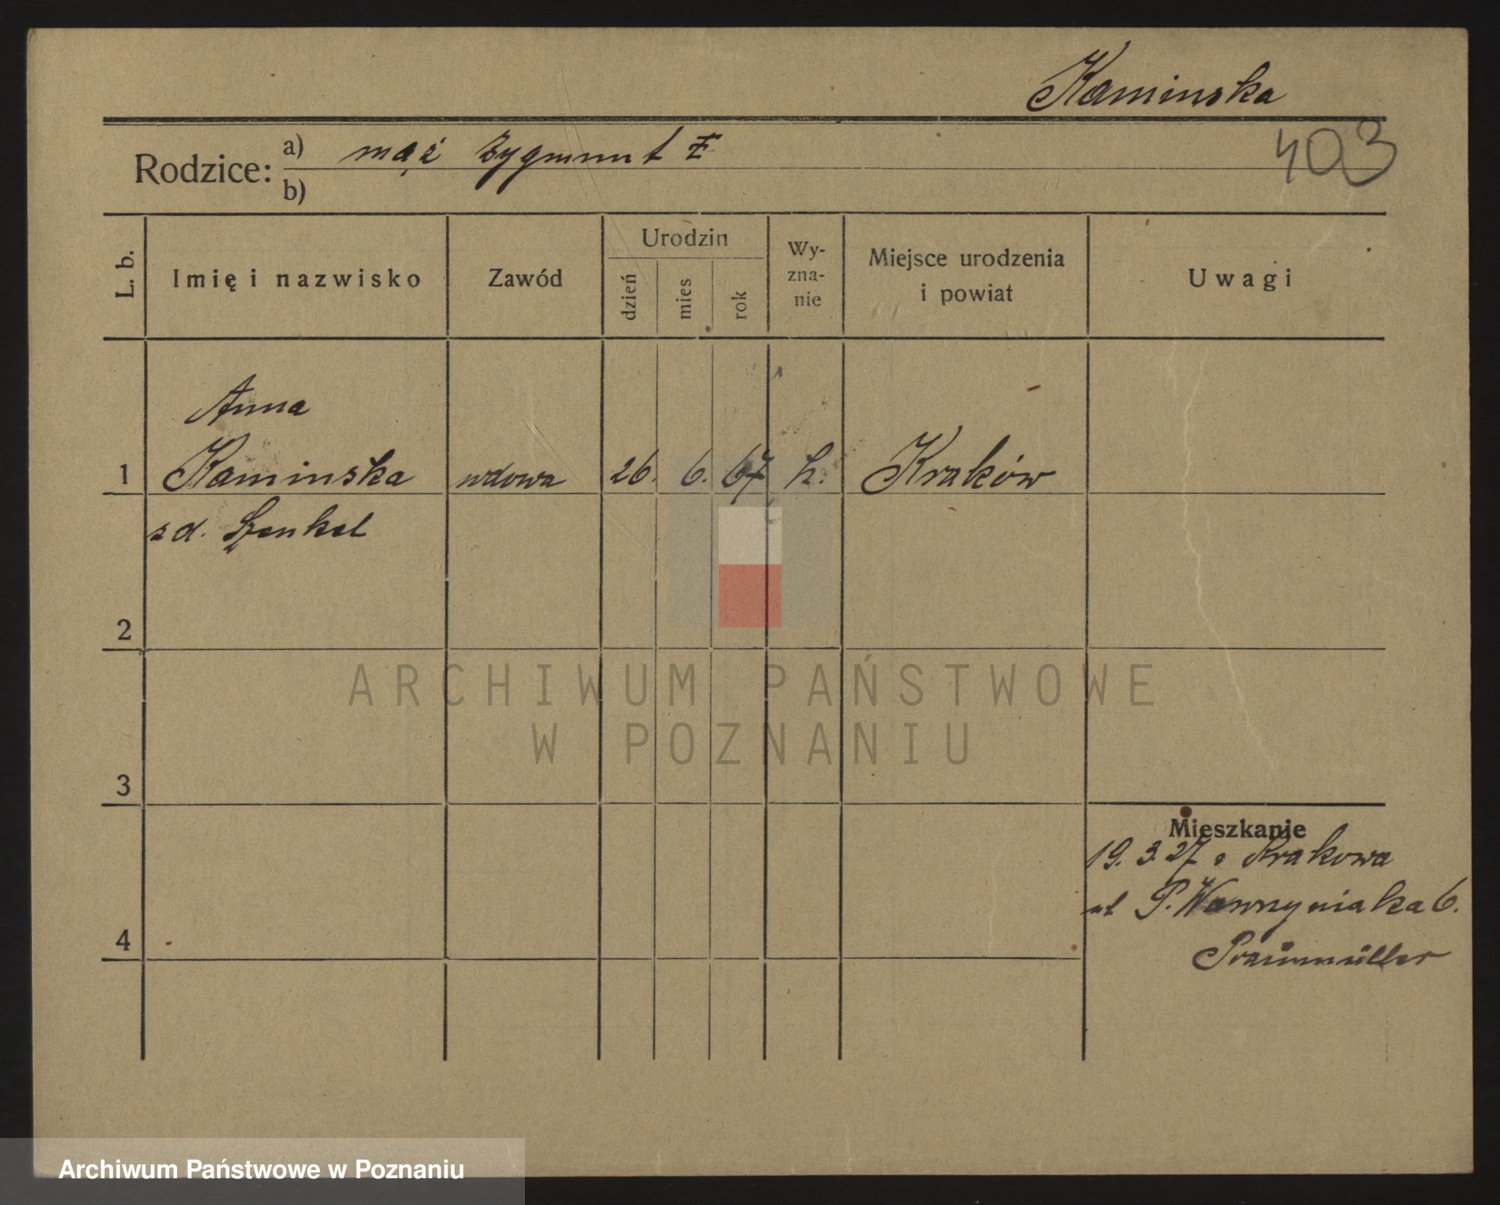 Kaminska
403
Rodzice: a) mąż Zygmunt
b)
L. b. Imię i nazwisko Zawód Urodzin dzień mies rok Wyznanie Miejsce urodzenia i powiat Uwagi
Anna
1 Kaminska wdowa 26. 6. 67 Kraków
z d.
2
ARCHIWUM PAŃSTWOWE
W POZNANIU
3
Mieszkanie
19. 3. 27 z Krakowa
ul P. Wawrzyniaka 6.
4
Archiwum Państwowe w Poznaniu